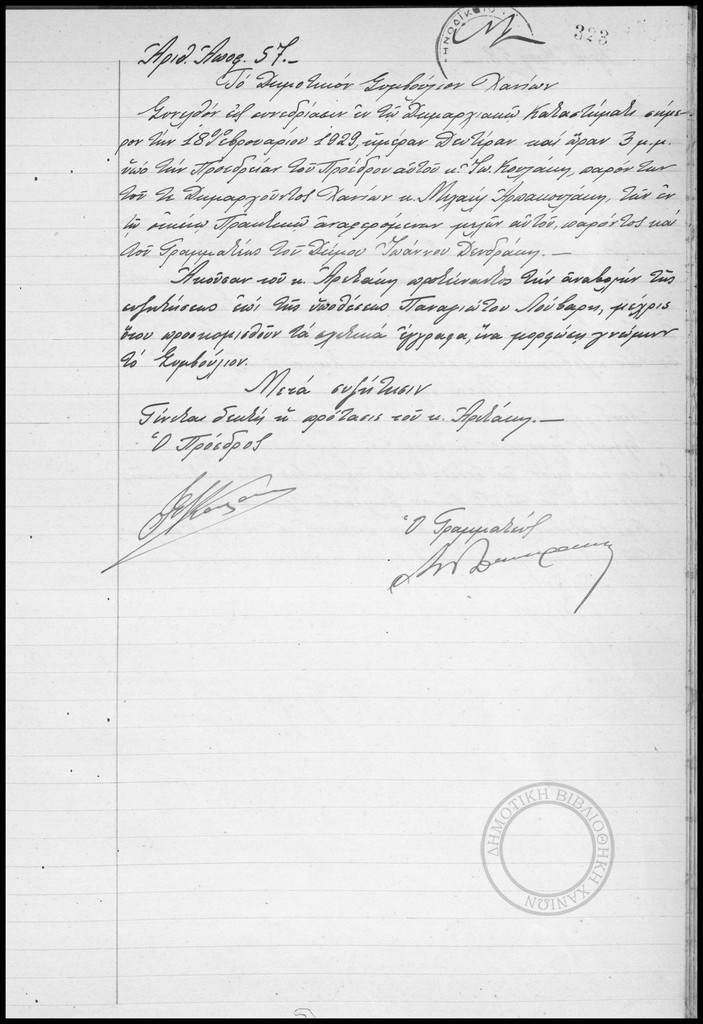 323
Ἀριθ. Ἀποφ. 57.-
Τό Δημοτικόν Συμβούλιον Χανίων
Συνελθόν εἰς συνεδρίασιν ἐν τῷ Δημαρχιακῷ Καταστήματι σήμε-
ρον τήν 18 Φεβρουαρίου 1929, ἡμέραν Δευτέραν καί ὥραν 3 μ.μ.
ὑπό τήν Προεδρείαν τοῦ Προέδρου αὐτοῦ κ. Ἰω. παρόντων
τοῦ κ. Δημαρχοῦντος Χανίων κ. Μιχαήλ τῶν ἐν
τῷ οἰκείῳ Πρακτικῷ ἀναφερομένων μελῶν αὐτοῦ, παρόντος καί
τοῦ Γραμματέως τοῦ Δήμου Ἰωάννου Δενδράκη.-
Ἀκοῦσαν τοῦ κ. Ἀρετάκη προτείναντος τήν ἀναβολήν τῆς
συζητήσεως ἐπί τῆς ὑποθέσεως Παναγιώτου Λούβαρη, μέχρις
ὅτου προσκομισθοῦν τά σχετικά ἔγγραφα, ἵνα μορφώσῃ γνώμην
τό Συμβούλιον.
Μετά συζήτησιν
Γίνεται δεκτή ἡ πρότασις τοῦ κ. Ἀρετάκη.-
Ὁ Πρόεδρος
Ὁ Γραμματεύς
ΔΗΜΟΤΙΚΗ ΒΙΒΛΙΟΘΗΚΗ ΧΑΝΙΩΝ